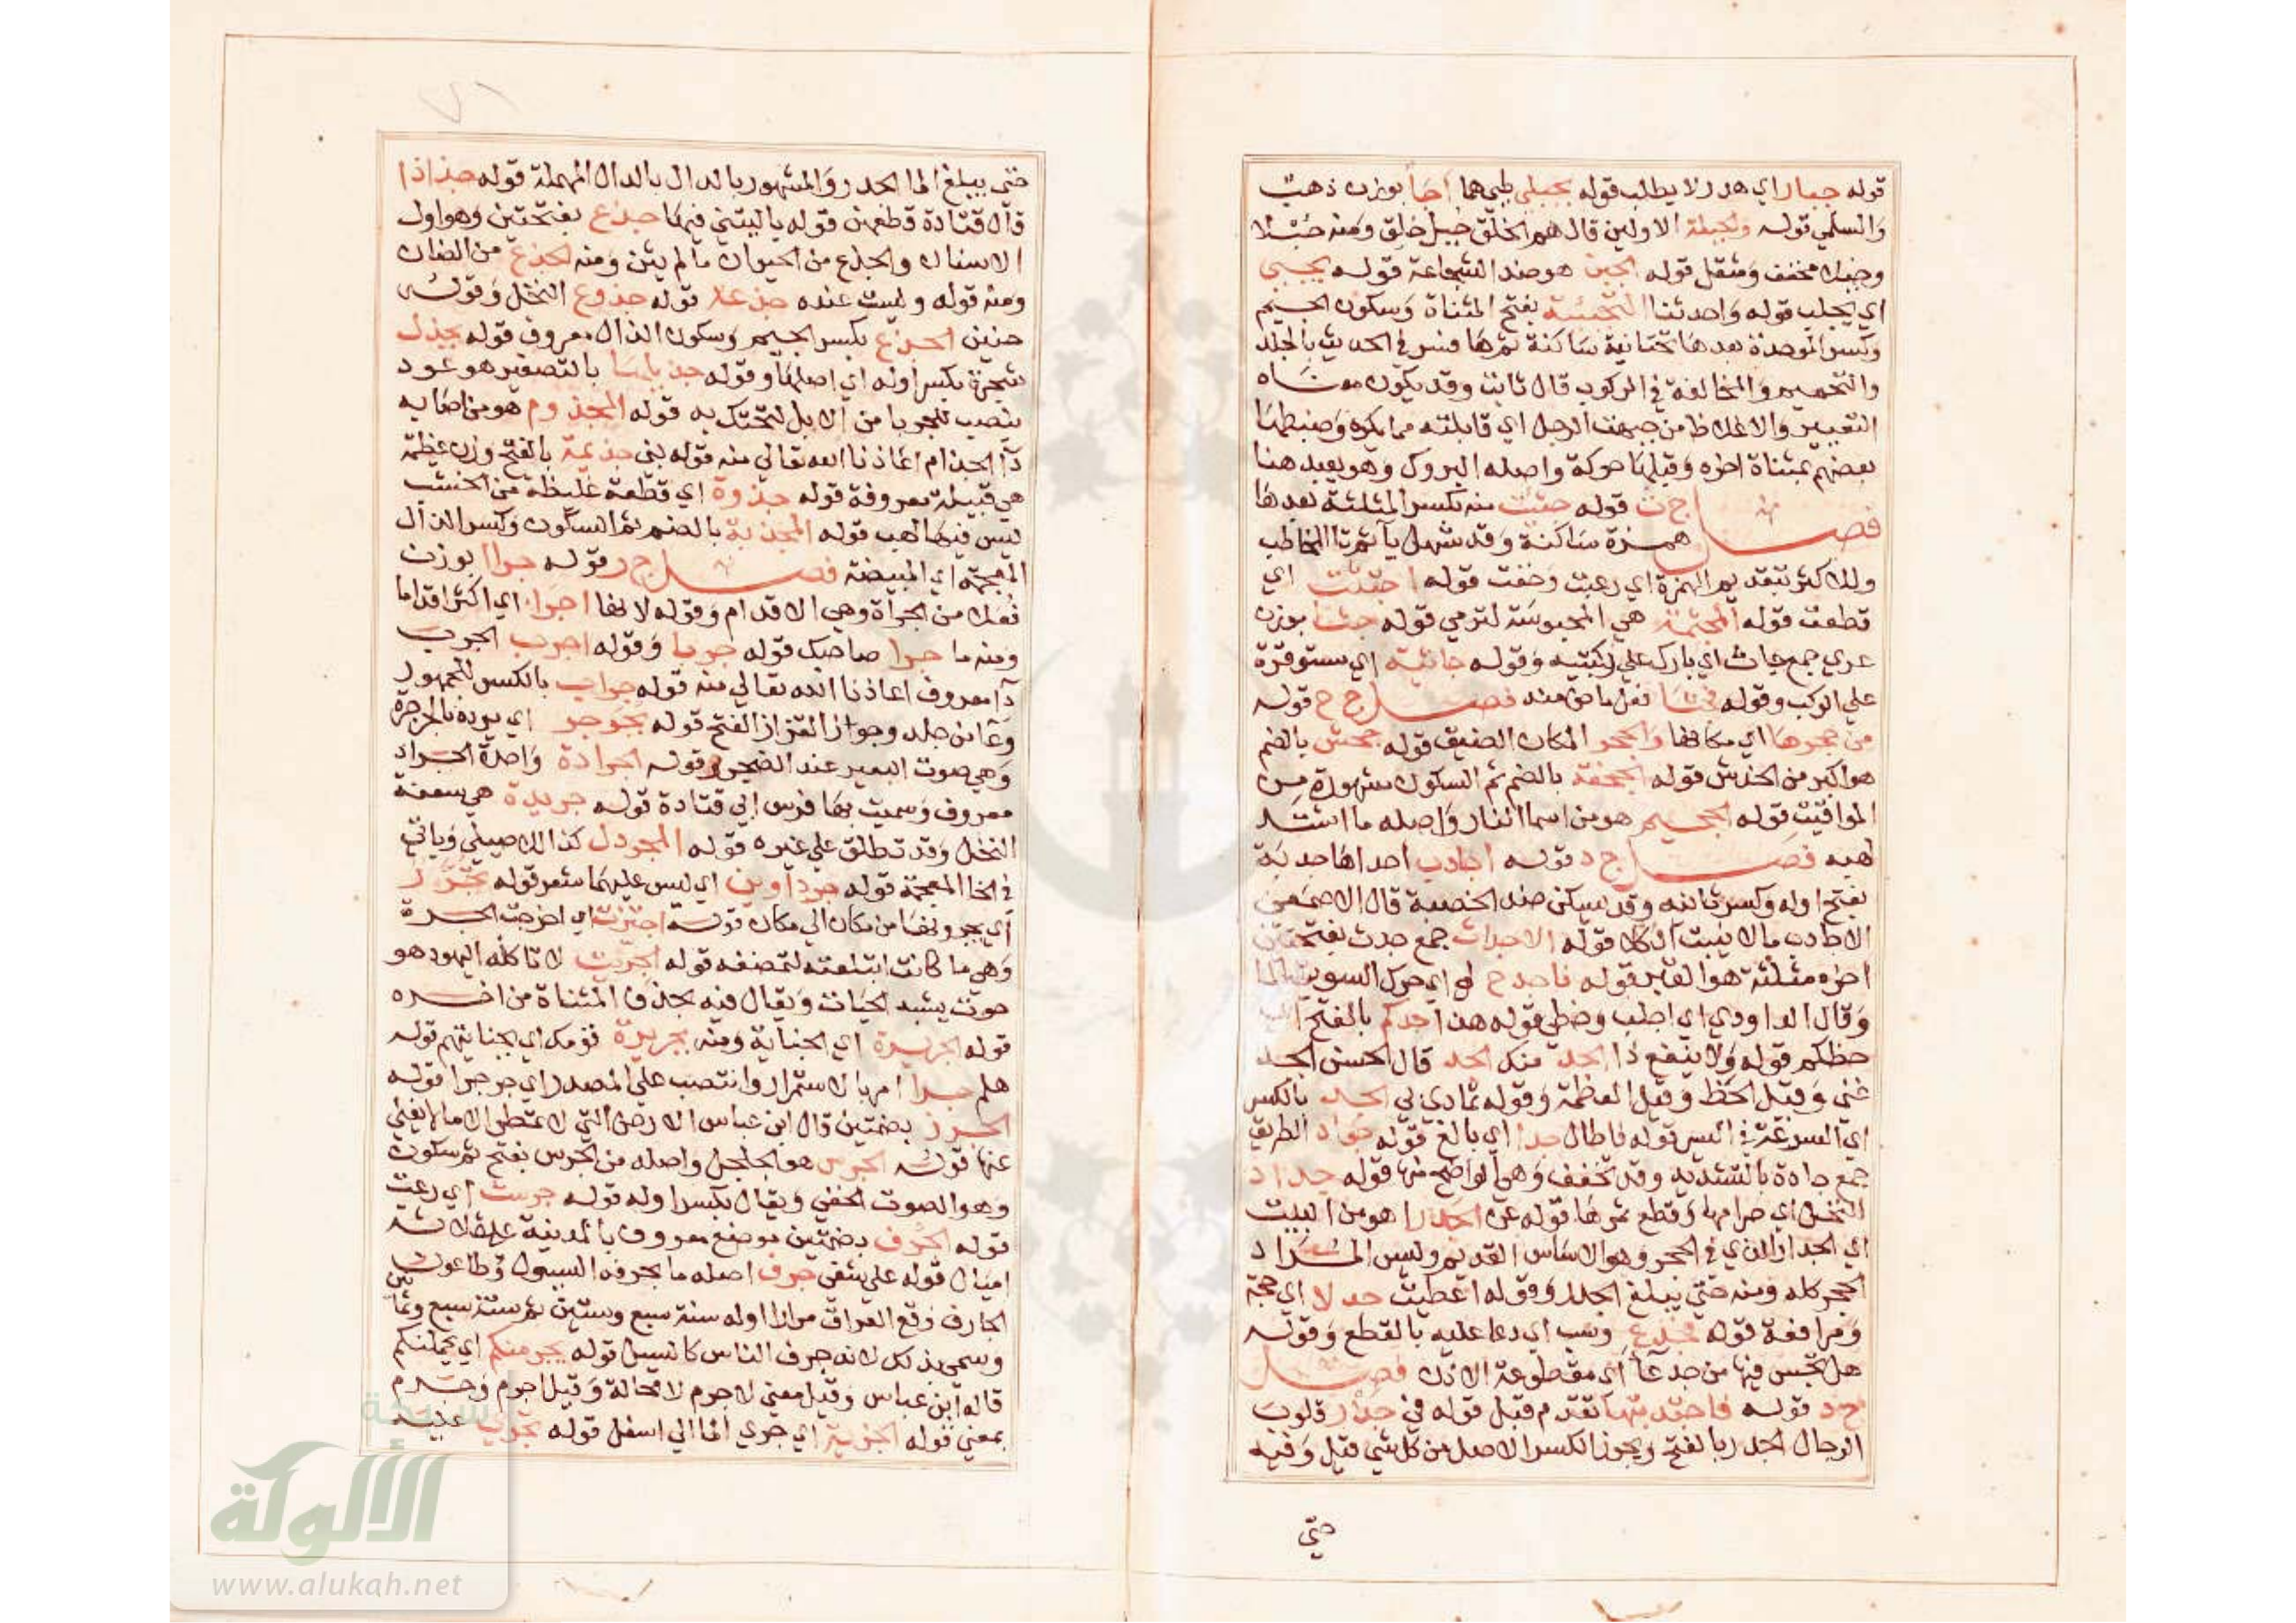 قوله جبار اي هدر لا يطلب قوله بجبلي طي هما أجا بوزن ذهب
والسلمي قوله والجبلة الاولين قال هم الخلق جبل خلق ومنه جبلا
وجبلا مخفف ومثقل قوله الجبن هو ضد الشجاعة قوله يجبي
اي يجلب قوله واحدثنا التجبية بفتح المثناة وسكون الجيم
وكسر الموحدة بعدها تحتانية ساكنة ثم ها فسر في الحديث بالجلد
والتحميم والمخالفة في الركوب قال ثابت وقد يكون معناه
التعيير والاغلاظ من جبهت الرجل اي قابلته مما يكره وضبطها
بعضهم بمثناة اخره وقبلها حركة واصله البروك وهو بعيد هنا
فصل ج ث قوله جثثت منه بكسر المثلثة بعدها
همزة ساكنة وقد تسهل يا ثم تا المخاطب
وللاكثر بتقديم الهمزة اي رعبت وخفت قوله اجتثت اي
قطعت قوله المجثمة هي المحبوسة لترمي قوله جثا بوزن
عري جمع جاث اي بارك علي ركبتيه وقوله جاثية اي مستوفزة
علي الركب وقوله فجثا فعل ماض منه فصل ج ح قوله
من جحرها اي مكانها والجحر المكان الضيق قوله جحش بالضم
هو اكبر من الخدش قوله الجحفة بالضم ثم السكون مشهورة من
المواقيت قوله الجحيم هو من اسما النار واصله ما اشتد
لهبه فصل ج د قوله اجادب احداها جدبة
بفتح اوله وكسر ثانيه وقد يسكن ضد الخصبة قال الاصمعي
الاجادب ما لا ينبت الكلا قوله الاجداث جمع جدث بفتحتين
اخره مثلثة هو القبر قوله فاجدح لي اي حرك السويق بالما
وقال الداودي اي احلب وخطي قوله هذا جدكم بالفتح اي
حظكم قوله ولا ينفع ذا الجد منك الجد قال الحسن الجد
غني وقيل الحظ وقيل العظمة وقوله تمادي بي الجد بالكسر
اي السرعة في السير قوله فاطال جدا اي بالغ قوله جواد الطريق
جمع جادة بالتشديد وقد تخفف وهي الواضح منها قوله جداد
النخل اي صرامها وقطع ثمرها قوله عن الجدر اهو من البيت
اي الجدار الذي في الحجر وهو الاساس القديم وليس المراد
الحجر كله ومنه حتي يبلغ الجدر وقوله اعطيت جدلا اي حجة
ومرافعة قوله فجدع وسب اي دعا عليه بالقطع وقوله
هل تحس فيها من جدعا اي مقطوعة الاذن فصل
ج ذ قوله فاجتذبتها تقدم قبل قوله في جذر قلوب
الرجال الجذر بالفتح ويجوز الكسر الاصل من كل شي قيل وفيه
حتي
حتي يبلغ الما الجدر والمشهور بالدال بالدال المهملة قوله جذاذا
قال قتادة قطعهن قوله يا ليتني فيها جذع بفتحتين وهو اول
الاسنان والجذع من الحيوان ما لم يثن ومنه الجذع من الضان
ومنه قوله وليست عنده جذعة قوله جذوع النخل وقوله
حنين الجذع بكسر الجيم وسكون الذال معروف قوله بجذل
شجرة بكسر اوله اي اصلها وقوله جذيلها بالتصغير هو عود
ينصب للجربا من الابل لتحتك به قوله المجذوم هو من اصابه
دا الجذام اعاذنا الله تعالي منه قوله بني جذيمة بالفتح وزن عظيمة
هي قبيلة معروفة قوله جذوة اي قطعة غليظة من الخشب
ليس فيها لهب قوله المجذية بالضم ثم السكون وكسر الذال
المعجمة اي المبيضة فصل ج ر قوله جرا بوزن
فعلا من الجرأة وهي الاقدام وقوله لانها اجرا اي اكثر اقداما
ومنه ما جرا صاحبك قوله جربا وقوله اجرب الجرب
دا معروف اعاذنا الله تعالي منه قوله جراب بالكسر للجمهور
وعا من جلد وجواز القزاز الفتح قوله يجرجر اي يردد بالجرجرة
وهي صوت البعير عند الضجر قوله الجرادة واحدة الجراد
معروف وسميت بها فرس ابي قتادة قوله جريدة هي سعفة
النخل وقد تطلق علي غيره قوله المجردل كذا للاصيلي وياتي
في الخا المعجمة قوله جرداوين اي ليس عليهما شعر قوله يجرر
اي يجرونها من مكان الي مكان قوله اجترت اي اخرجت الجرة
وهي ما كانت ابتلعته لتمضغه قوله الجريت لا تاكله اليهود هو
حوت يشبه الحيات ويقال فيه بحذف المثناة من اخره
قوله الجريرة اي الجناية ومنه بجريرة قومك اي بجنايتهم قوله
هلم جرا امر بالاستمرار وانتصب علي المصدر اي جر جرا قوله
الجرز بضمتين قال ابن عباس الارض التي لا تمطر الا ما لا يغني
عنها قوله الجرس هو الجلجل واصله من الجرس بفتح ثم سكون
وهو الصوت الخفي ويقال بكسر اوله قوله جرست اي رعت
قوله الجرف بضمتين موضع معروف بالمدينة علي ثلاثة
اميال قوله علي شفي جرف اصله ما يجرفه السيول وطاعون
الجارف وقع العراق مرارا اوله سنة سبع وستين ثم سنة سبع وثمانين
وسمي بذلك لانه جرف الناس كالسيل قوله يجرمنكم اي يحملنكم
قاله ابن عباس وقيل معني لا جرم لا محالة وقيل اجرم وجرم
بمعني قوله الجرية اي جري الما الي اسفل قوله يجري عليه
شبكة
الألوكة
www.alukah.net